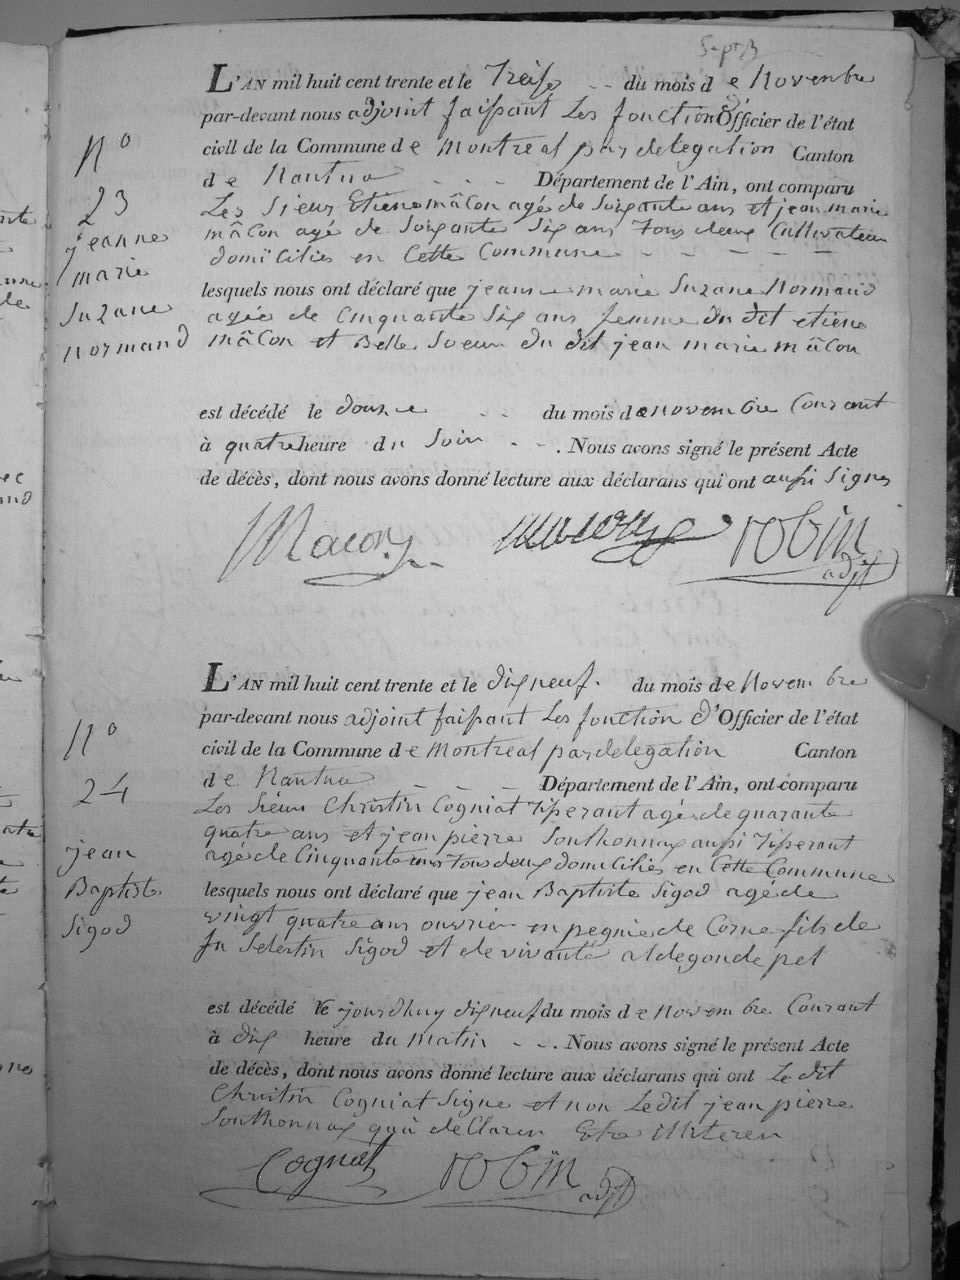 L'AN mil huit cent trente et le Treise du mois de Novembre
par-devant nous adjoint faissant Les fonction d'Officier de l'état
civil de la Commune de Montreal par delegation Canton
de Nantua Département de l'Ain, ont comparu
Les Sieurs Etiene mâcon agé de Soixante ans et jean marie
mâcon agé de Soixante Six ans Tous deux Cultivateur
domiciliés en Cette Commune
lesquels nous ont déclaré que jeanne marie Suzane Normand
agée de Cinquante Six ans femme du dit etiene
mâcon et Belle Soeur du dit jean marie mâcon
N°
23
jeanne
marie
Suzane
normand
est décédé le douse du mois de novembre Courant
à quatre heure du Soir . Nous avons signé le présent Acte
de décès, dont nous avons donné lecture aux déclarans qui ont aussi Signes
Macon
macon
robin
adjt
L'AN mil huit cent trente et le dix neuf. du mois de Novembre
par-devant nous adjoint faissant Les fonction d'Officier de l'état
civil de la Commune de Montreal par delegation Canton
de Nantua Département de l'Ain, ont comparu
Les Sieur Christin Cogniat Tisserant agé de quarante
quatre ans et jean pierre Sonthonnax aussi Tisserant
agé de Cinquante ans Tous deux domiciliés en Cette Commune
lesquels nous ont déclaré que jean Baptiste Sigod agé de
vingt quatre ans ouvrier en pegnie de Corne fils de
fu Selestin Sigod et de vivante aldegonde pet
N°
24
jean
Baptiste
Sigod
est décédé le jourdhuy dix neuf du mois de Novembre Courant
à dix heure du Matin . Nous avons signé le présent Acte
de décès, dont nous avons donné lecture aux déclarans qui ont Le dit
Christin Cogniat Signe et non Ledit jean pierre
Sonthonnax qui à deClaren Etre illiteren
Cogniat
robin
adjt